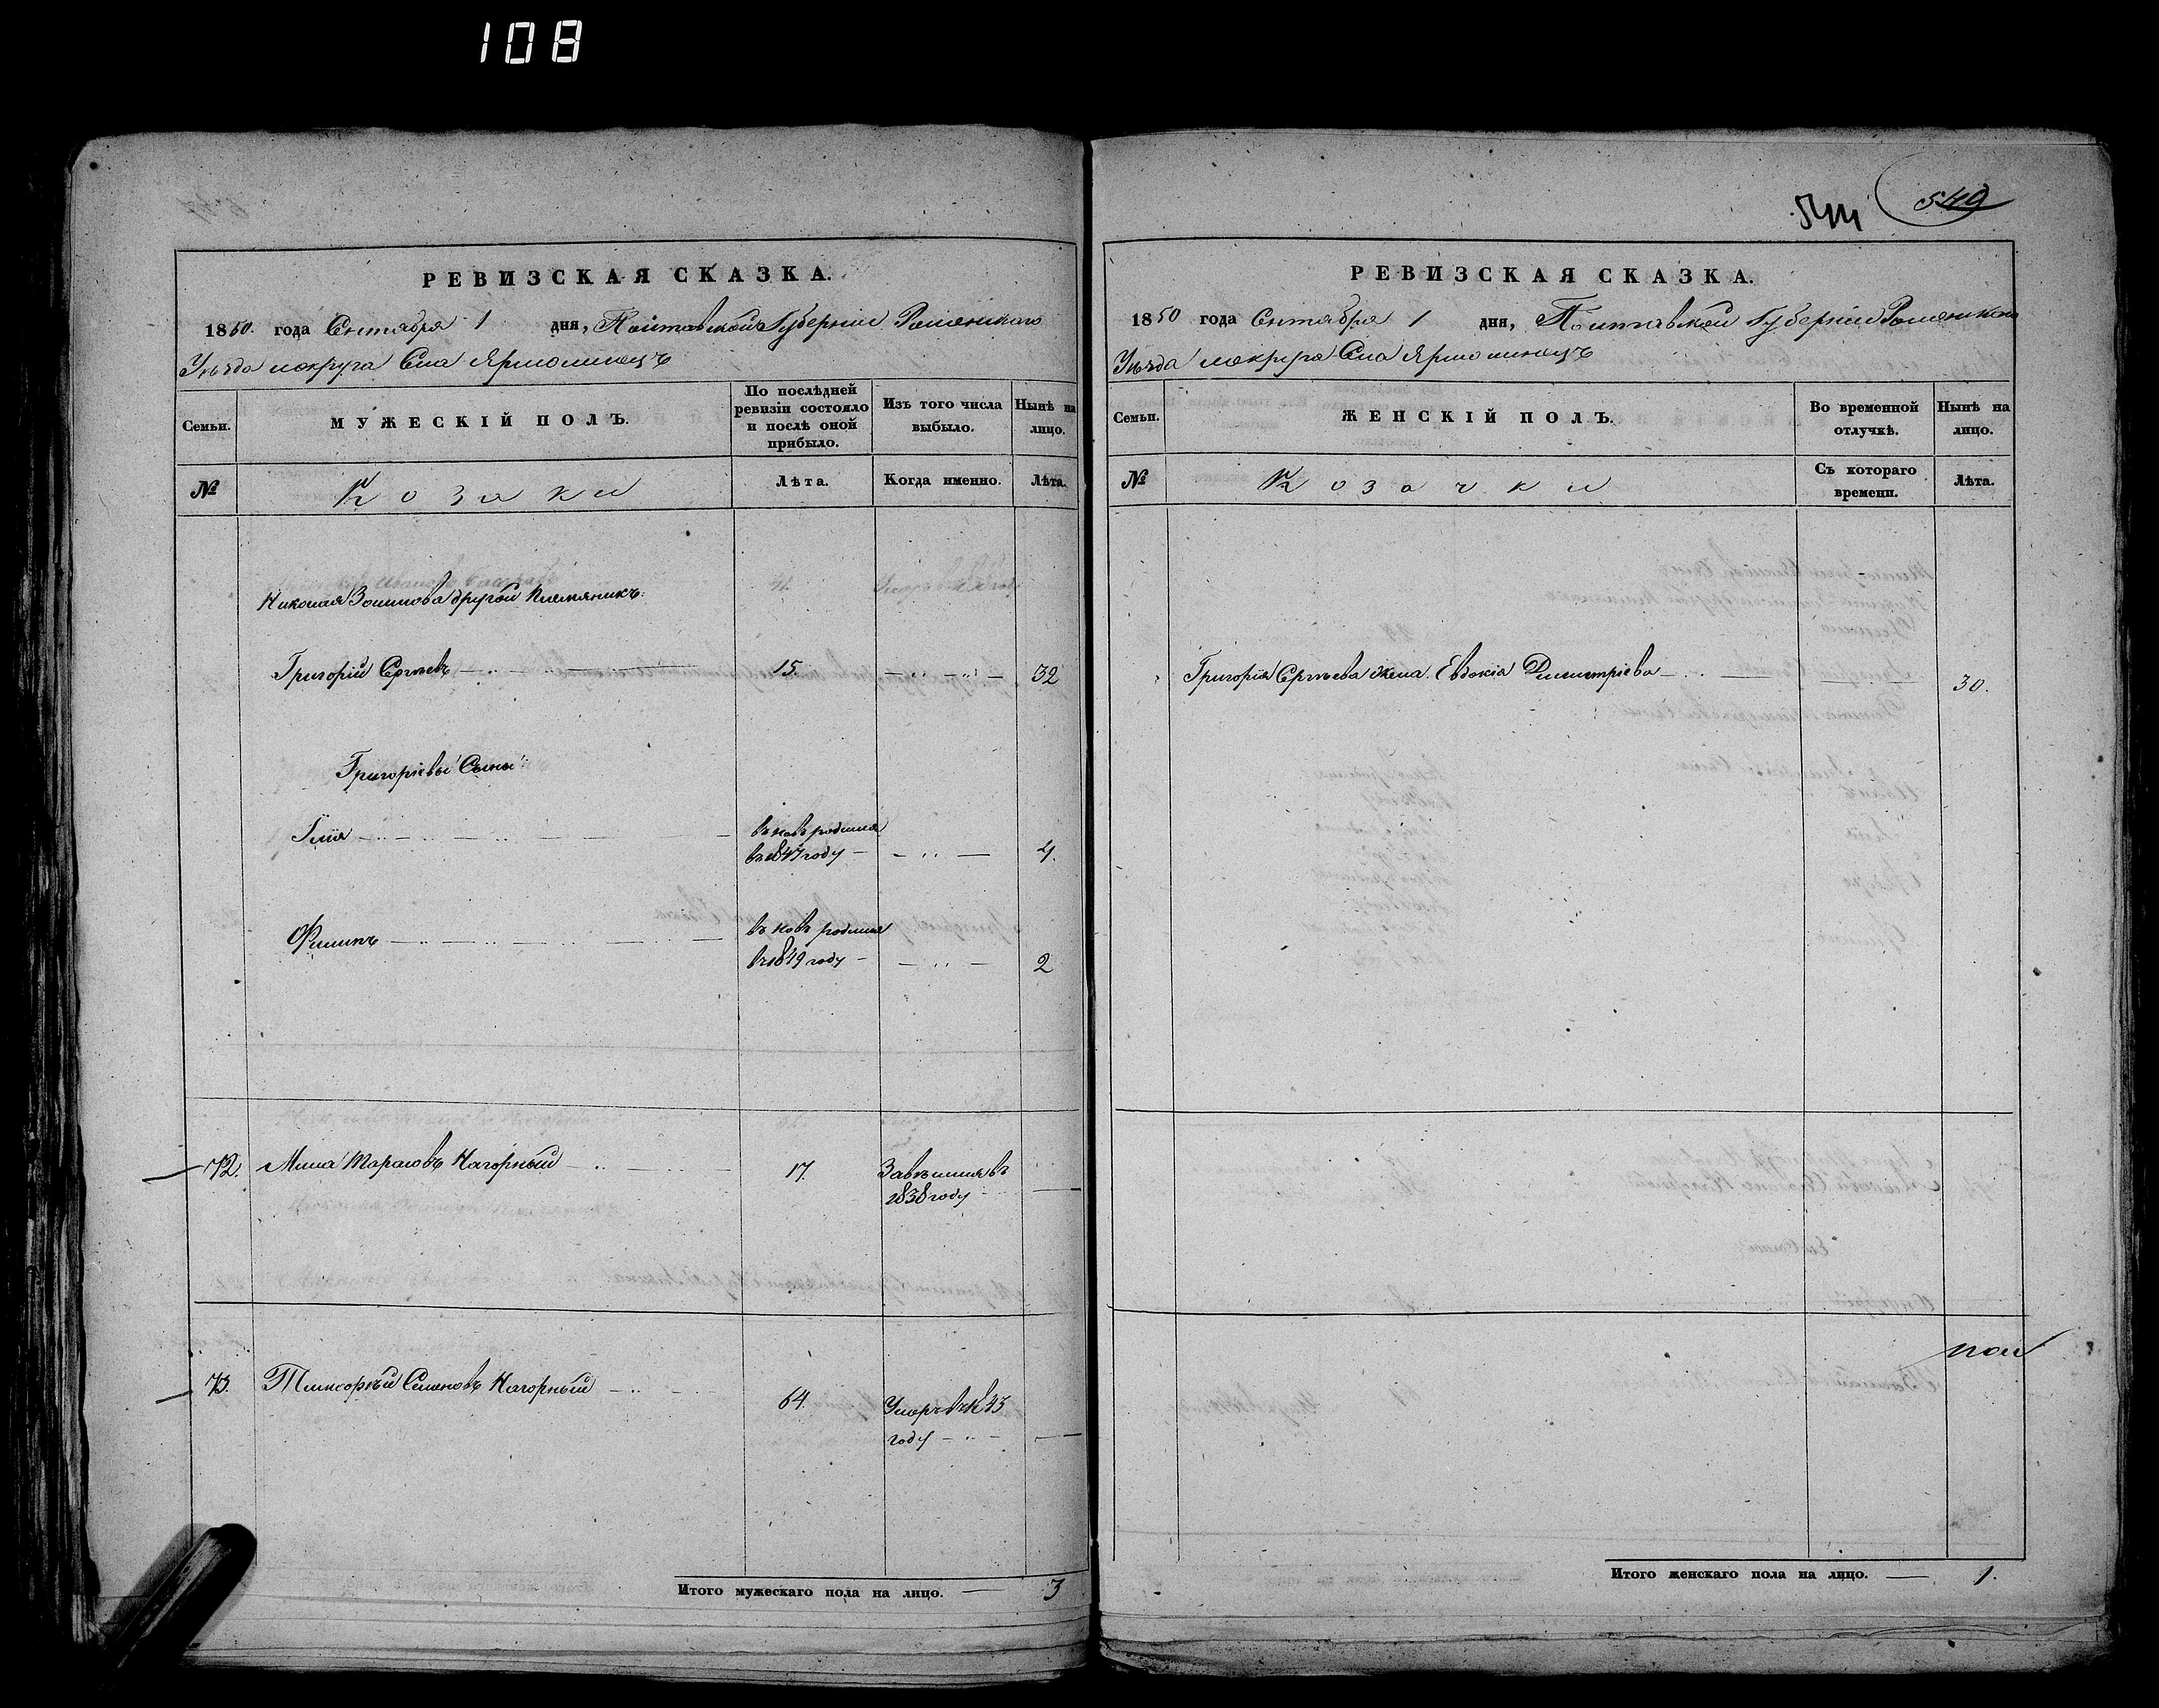 108
544
549
РЕВИЗСКАЯ СКАЗКА.
1850. года Сентября 1 дня, Полтавской Губерніи Роменскаго
Уѣзда округа Села Ярмолинецъ
Семьи.
МУЖЕСКІЙ ПОЛЪ.
По послѣдней ревизіи состояло и послѣ оной прибыло.
Изъ того числа выбыло.
Нынѣ на лицо.
№
Козаки
Лѣта.
Когда именно.
Лѣта.
Николая Зосимова другой племянникъ:
Григорій Сергѣевъ 15. 32
Григоріевы Сыны:
Илія въ новъ родился
въ 1847 году 4.
Филипъ въ новъ родился
въ 1849 году 2
72. Мина Тарасовъ Нагорный 17.
1838 году
73. Семеновъ Нагорный 64. Умеръ въ 1843
году
Итого мужескаго пола на лицо. 3
РЕВИЗСКАЯ СКАЗКА.
1850 года Сентября 1 дня, Полтавской Губерніи Роменскаго
Уѣзда округа Села Ярмолинецъ
Семьи.
ЖЕНСКІЙ ПОЛЪ.
Во временной отлучкѣ.
Нынѣ на лицо.
№
Козачки
Съ котораго времени.
Лѣта.
Григорія Сергѣева жена Евдокія Димитріева 30.
Итого женскаго пола на лицо. 1.